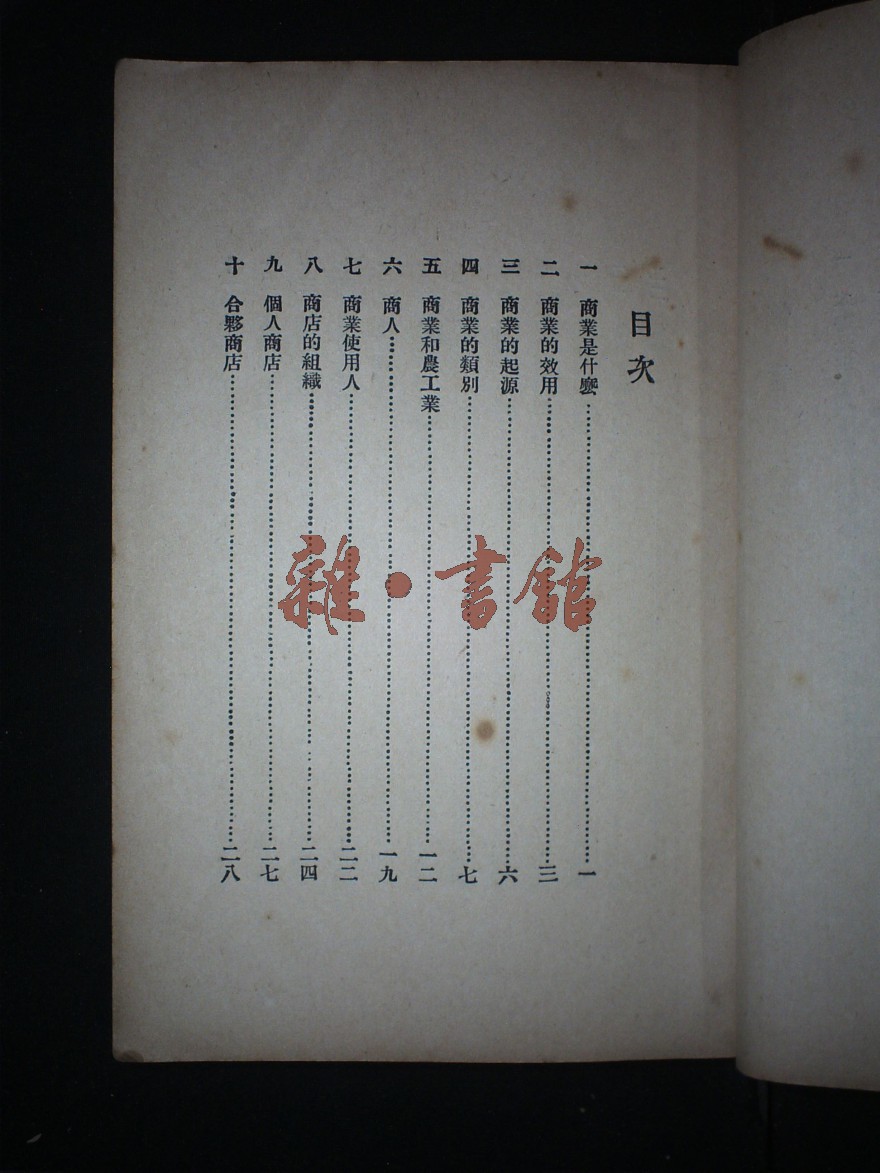 目次
一 商業是什麼……一
二 商業的效用……三
三 商業的起源……六
四 商業的類別……七
五 商業和農工業……一二
六 商人……一九
七 商業使用人……二二
八 商店的組織……二四
九 個人商店……二七
十 合夥商店……二八
雜·書館